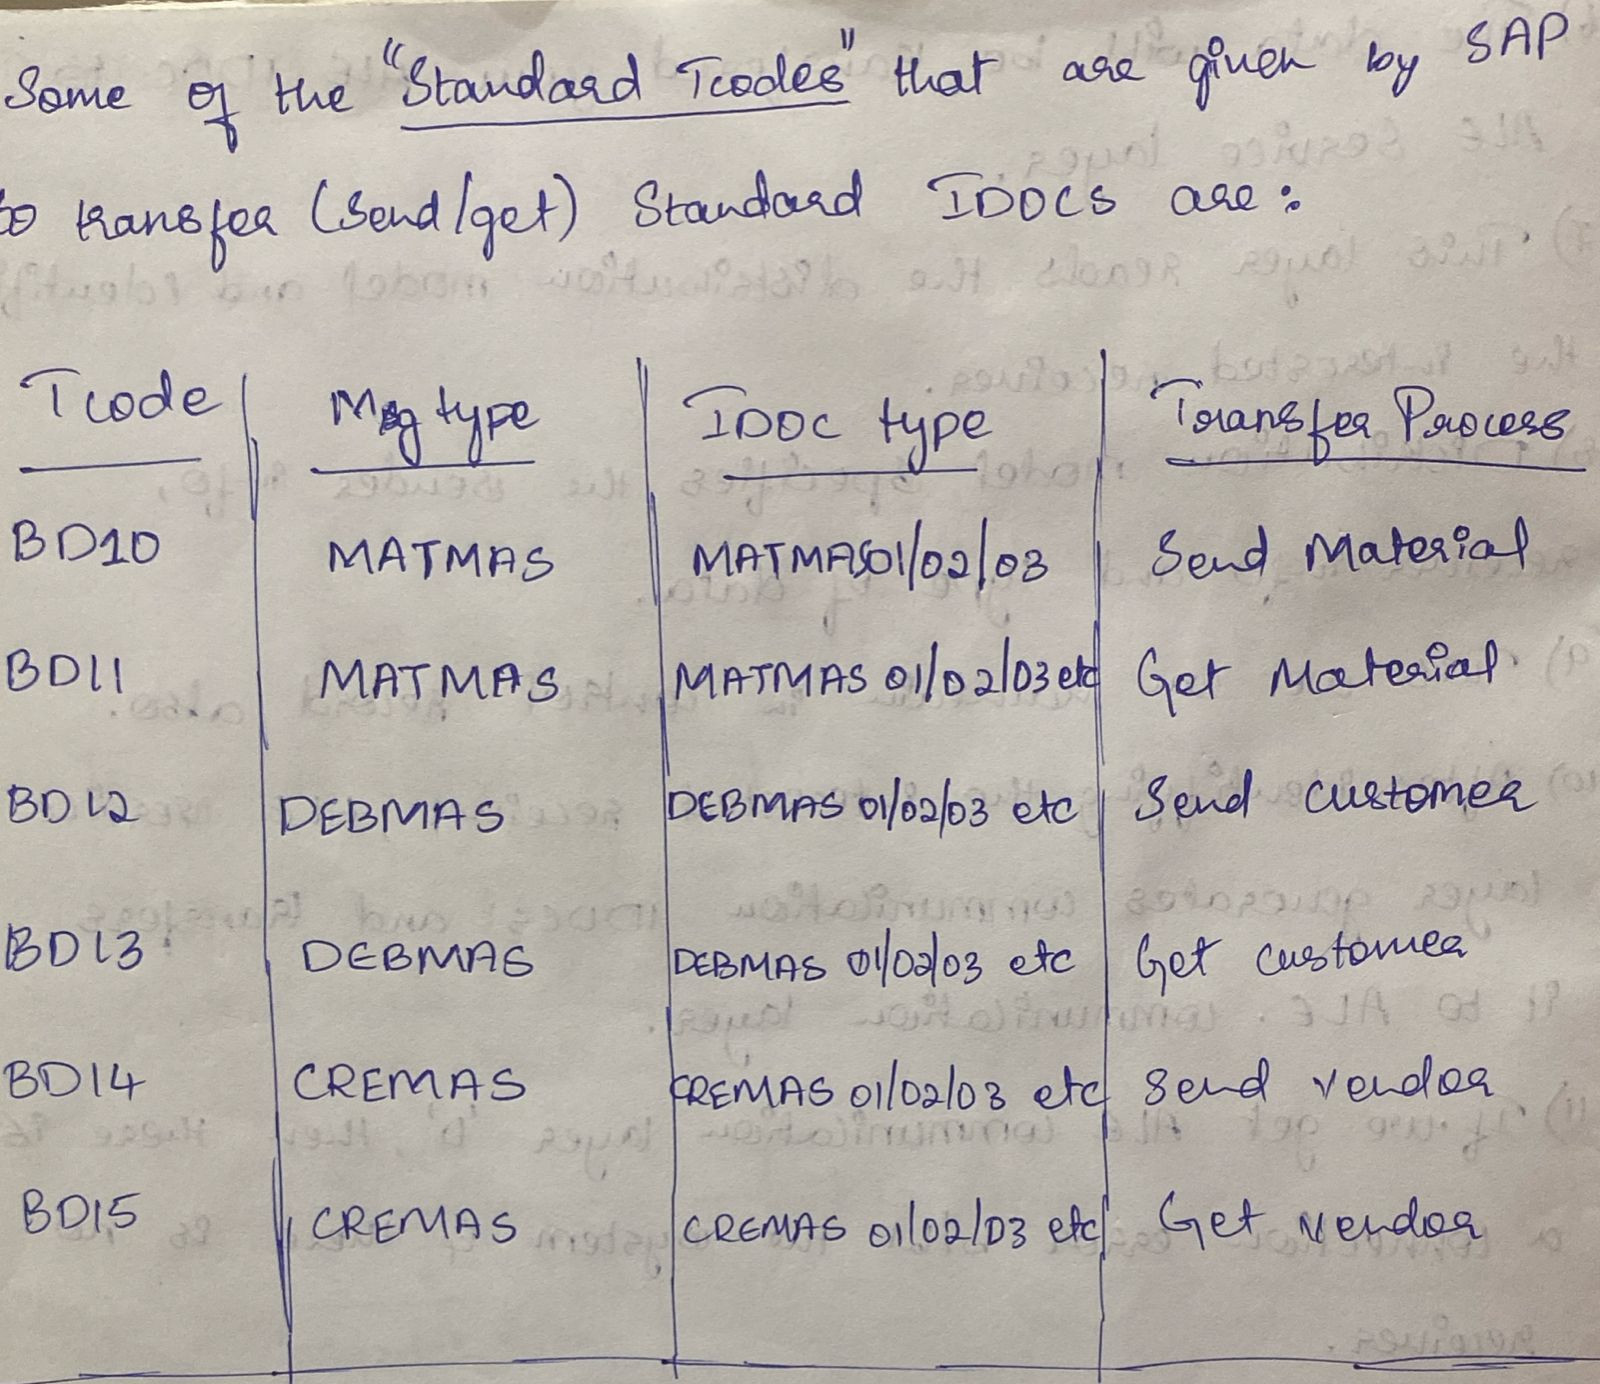 Some of the "Standard Tcodes" that are given by SAP
to transfer (send/get) Standard IDOCS are:
Tcode Msg type IDOC type Transfer Process
BD10 MATMAS MATMAS01/02/03 Send Material
BD11 MATMAS MATMAS 01/02/03 etc Get Material
BD12 DEBMAS DEBMAS 01/02/03 etc Send customer
BD13 DEBMAS DEBMAS 01/02/03 etc Get customer
BD14 CREMAS CREMAS 01/02/03 etc Send vendor
BD15 CREMAS CREMAS 01/02/03 etc Get vendor